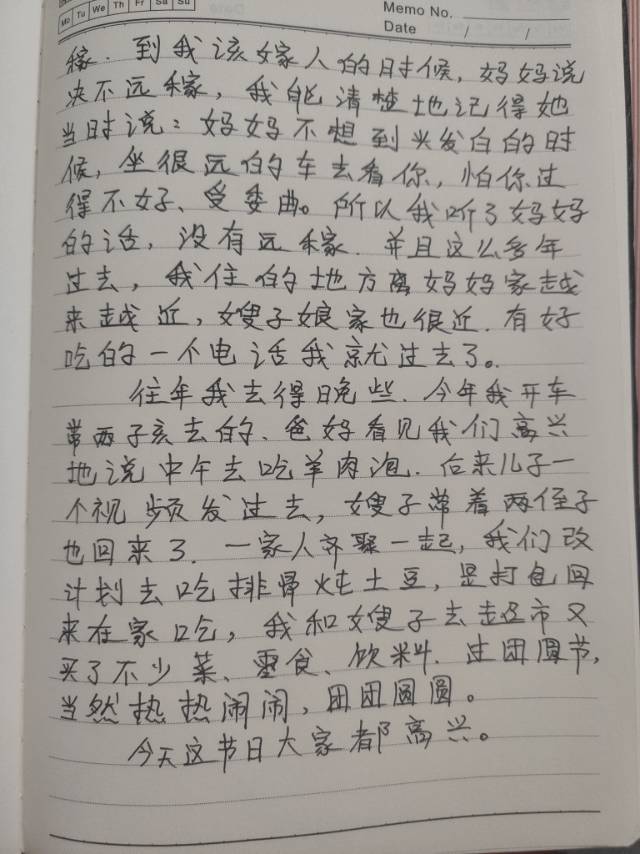 Mo Tu We Th Fr Sa Su
Memo No.
Date / /
稼．到我该嫁人的时候，妈妈说
决不远稼，我能清楚地记得她
当时说：妈妈不想到头发白的时
候，坐很远的车去看你，怕你过
得不好、受委曲。所以我听了妈妈
的话，没有远稼．并且这么多年
过去，我住的地方离妈妈家越
来越近，嫂子娘家也很近．有好
吃的一个电话我就过去了。
往年我去得晚些．今年我开车
带两子亥去的、爸妈看见我们高兴
地说中午去吃羊肉泡．后来儿子一
个视频发过去，嫂子带着两侄子
也回来了．一家人齐聚一起，我们改
计划去吃排骨炖土豆，是打包回
来在家吃，我和嫂子去超市又
买了不少菜、零食、饮料．过团圆节，
当然热热闹闹，团团圆圆。
今天这节日大家都高兴。